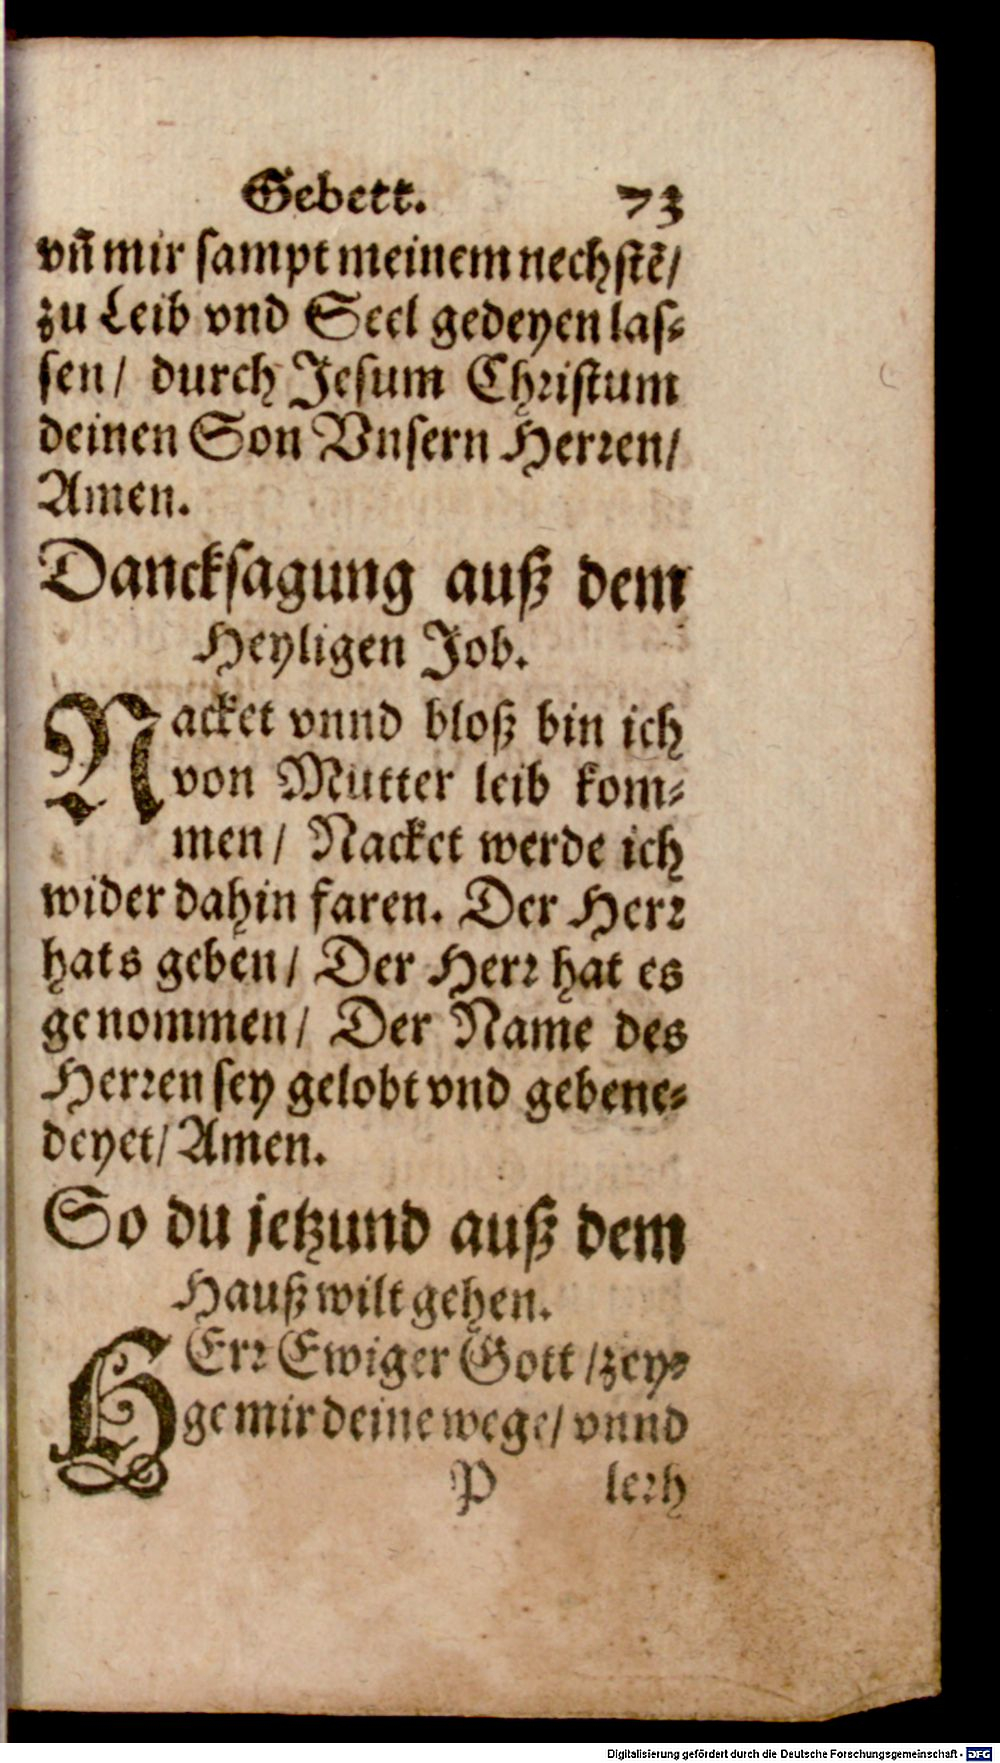 Gebett. 73
vñ mir sampt meinem nechstẽ/
zu Leib vnd Seel gedeyen las-
sen/ durch Jesum Christum
deinen Son Vnsern Herren/
Amen.
Dancksagung auß dem
Heyligen Job.
Nacket vnnd bloß bin ich
von Mutter leib kom-
men/ Nacket werde ich
wider dahin faren. Der Herr
hats geben/ Der Herr hat es
genommen/ Der Name des
Herren sey gelobt vnd gebene-
deyet/ Amen.
So du jetzund auß dem
Hauß wilt gehen.
HErr Ewiger Gott/ zey-
ge mir deine wege/ vnnd
P lerh
Digitalisierung gefördert durch die Deutsche Forschungsgemeinschaft - DFG